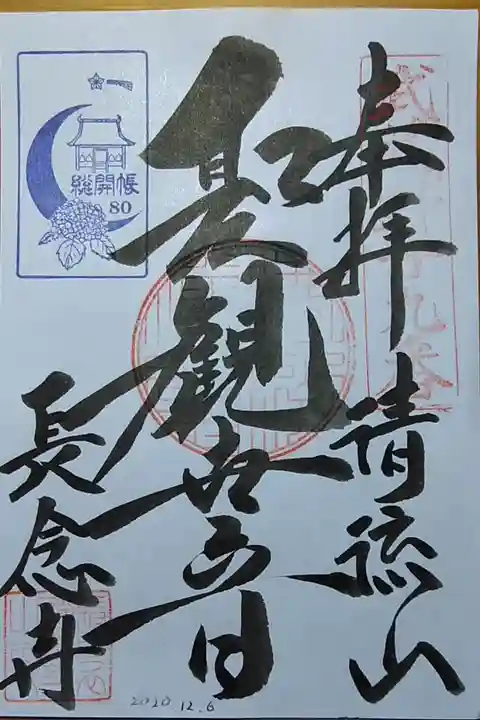 奉拝
清流山
聖観世音
長念寺
総開帳
80
2020.12.6